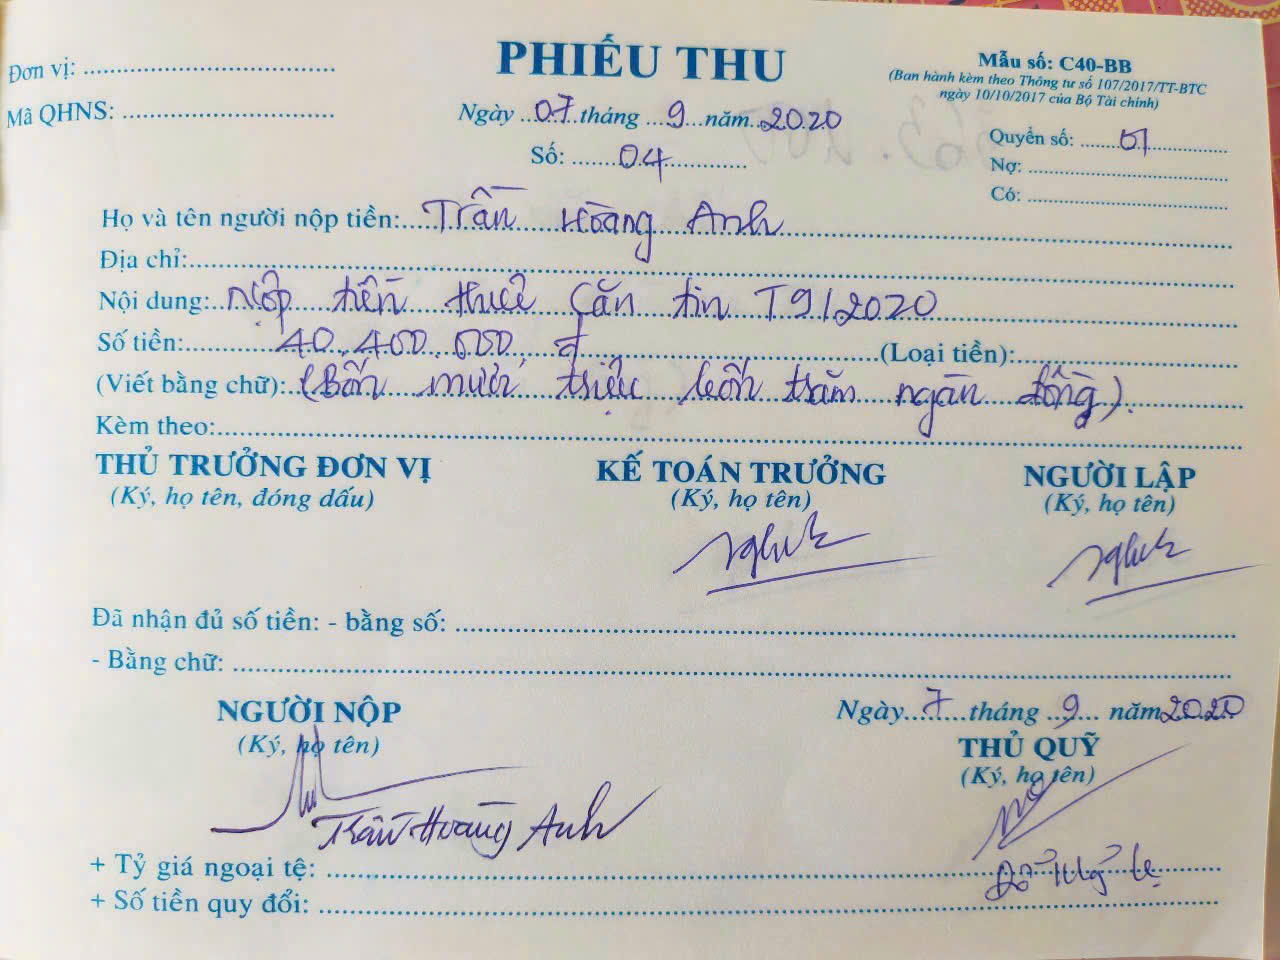 PHIẾU THU
Đơn vị: ................
Mã QHNS: ................
Mẫu số: C40-BB
(Ban hành kèm theo Thông tư số 107/2017/TT-BTC
ngày 10/10/2017 của Bộ Tài chính)
Ngày 07 tháng 9 năm 2020
Số: 04
Quyển số: 01
Nợ: ................
Có: ................
Họ và tên người nộp tiền: Trần Hoàng Anh
Địa chỉ: ................
Nội dung: Nộp tiền thuê Căn tin T9/2020
Số tiền: 40.400.000 đ (Loại tiền): ................
(Viết bằng chữ): (Bốn mươi triệu bốn trăm ngàn đồng).
Kèm theo: ................
THỦ TRƯỞNG ĐƠN VỊ KẾ TOÁN TRƯỞNG NGƯỜI LẬP
(Ký, họ tên, đóng dấu) (Ký, họ tên) (Ký, họ tên)
Đã nhận đủ số tiền: - bằng số: ................
- Bằng chữ: ................
Ngày 7 tháng 9 năm 2020
NGƯỜI NỘP THỦ QUỸ
(Ký, họ tên) (Ký, họ tên)
Trần Hoàng Anh
+ Tỷ giá ngoại tệ: ................
+ Số tiền quy đổi: ................